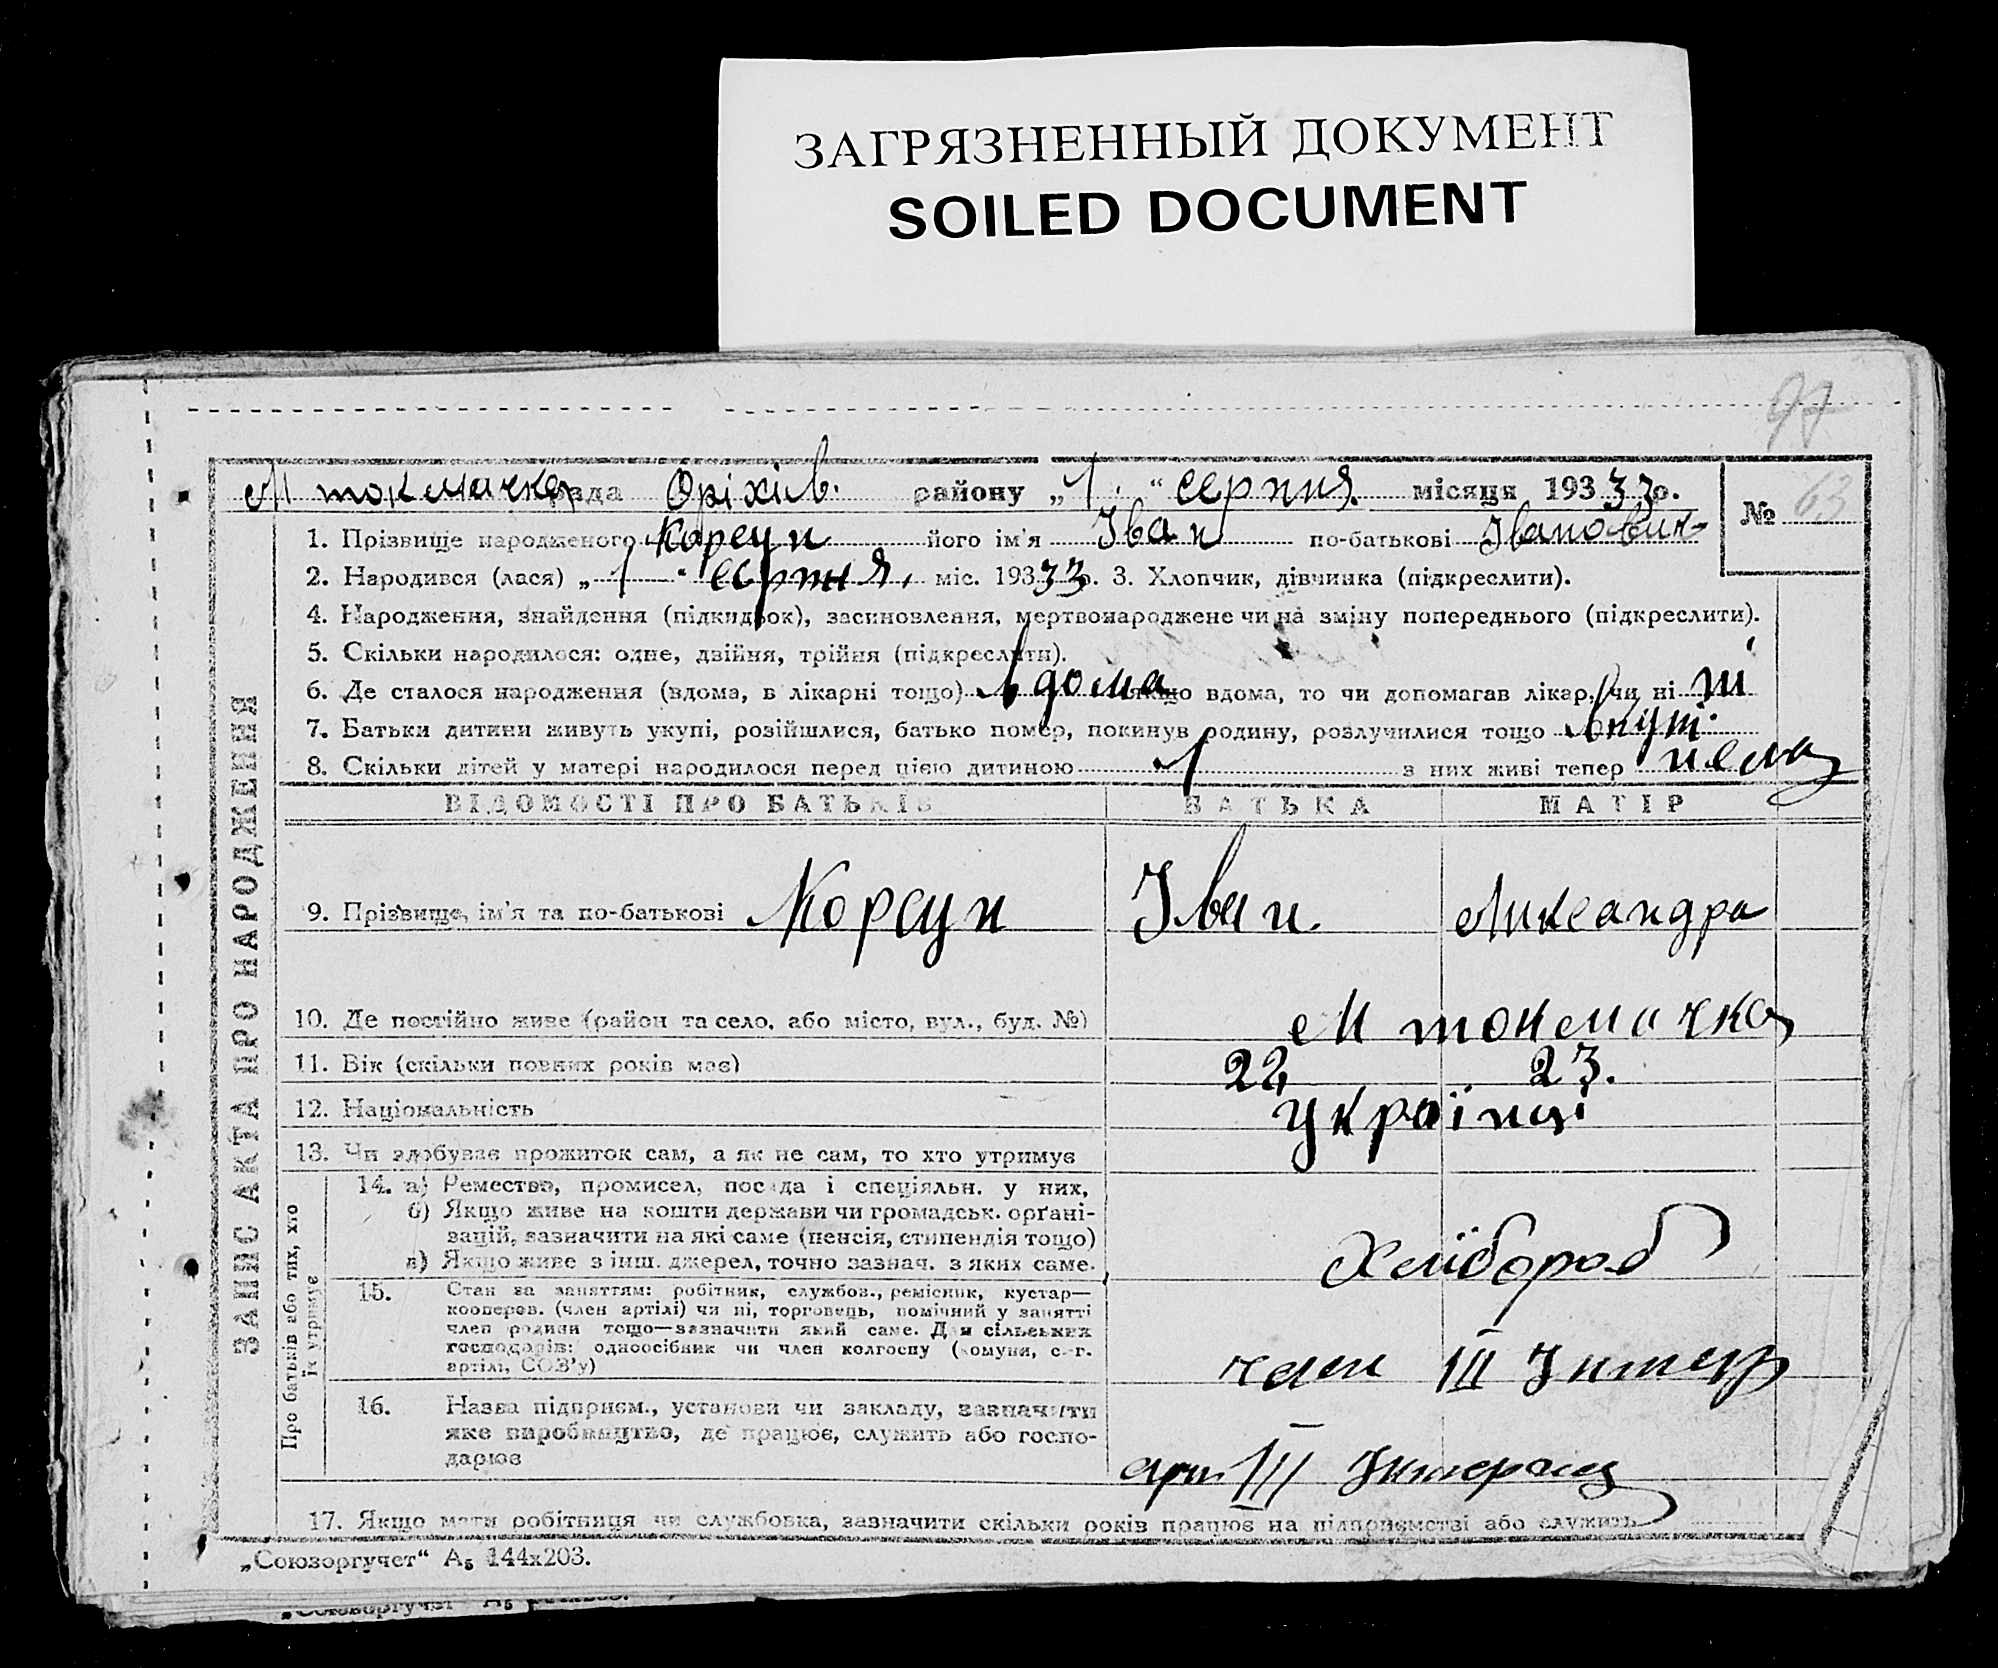 ЗАГРЯЗНЕННЫЙ ДОКУМЕНТ
SOILED DOCUMENT
97
М токмачка Оріхів. району „1." серпня. місяця 1933 р.
№ 63
1. Прізвище народженого Корсун його ім'я Іван по-батькові Іванович
2. Народився (лася) „1" серпня. міс. 1933 р. 3. Хлопчик, дівчинка (підкреслити).
4. Народження, знайдення (підкидьок), засиновлення, мертвонароджене чи на зміну попереднього (підкреслити).
5. Скільки народилося: одне, двійня, трійня (підкреслити).
6. Де сталося народження (вдома, в лікарні тощо) Вдома якщо вдома, то чи допомагав лікар, чи ні ні
7. Батьки дитини живуть укупі, розійшлися, батько помер, покинув родину, розлучилися тощо Вкупі.
8. Скільки дітей у матері народилося перед цією дитиною 1 з них живі тепер нема
ВІДОМОСТІ ПРО БАТЬКІВ БАТЬКА МАТІР
9. Прізвище, ім'я та по-батькові Корсун Іван. Александра
10. Де постійно живе (район та село, або місто, вул., буд. №) М токмачка
11. Вік (скільки повних років має) 22 23.
12. Національність Українці
13. Чи здобуває прожиток сам, а як не сам, то хто утримує
14. а) Ремество, промисел, посада і спеціяльн. у них,
б) Якщо живе на кошти держави чи громадськ. орґані-
зацій, зазначити на які саме (пенсія, стипендія тощо)
в) Якщо живе з інш. джерел, точно зазнач. з яких саме.
Хлібороб
15. Стан за заняттям: робітник, службов., ремісник, кустар—
кооперов. (член артілі) чи ні, торговець, помічний у занятті
член родини тощо—зазначити який саме. Для сільських
господарів: одноосібник чи член колгоспу (комуни, с.-г.
артілі, СОЗ'у)
член III Інтер
16. Назва підприєм., установи чи закладу, зазначити
яке виробництво, де працює, служить або госпо-
дарює
арт. III
17. Якщо мати робітниця чи службовка, зазначити скільки років працює на підприємстві або служить
ЗАПИС АКТА ПРО НАРОДЖЕННЯ
Про батьків або тих, хто
їх утримує
„Союзоргучет" А₅ 144х203.
„Союзоргучет" А₅